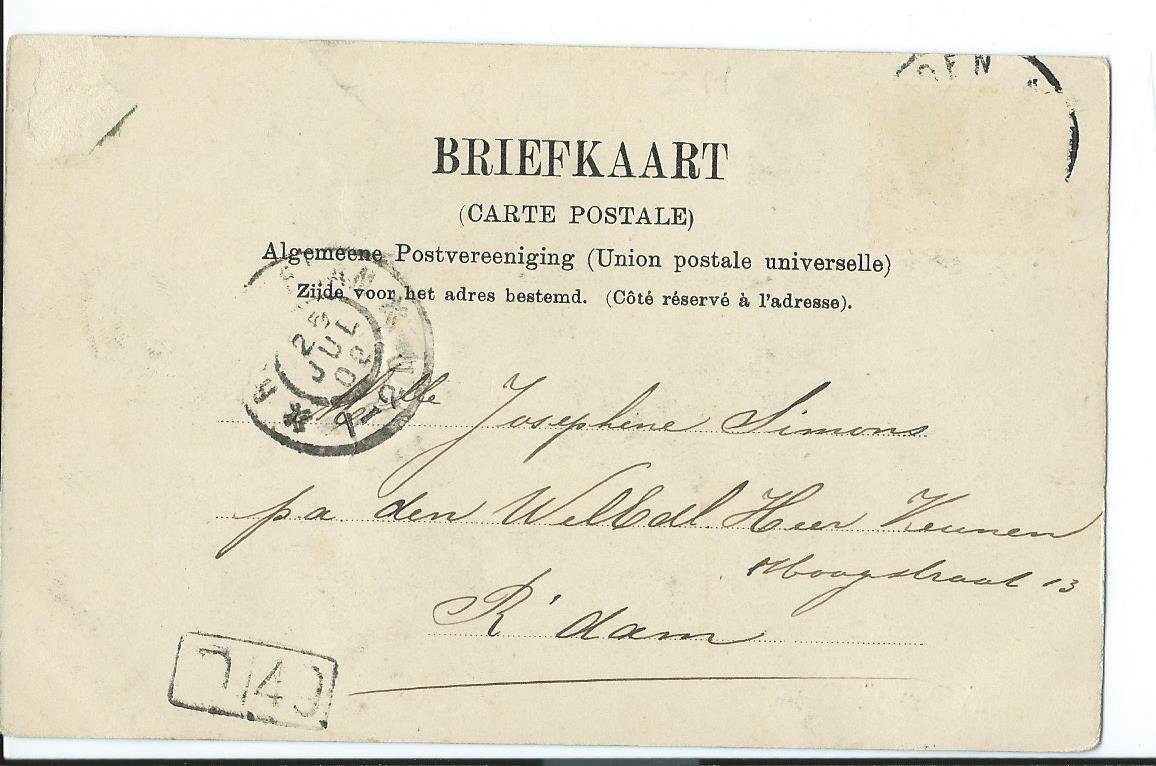 DEN
BRIEFKAART
(CARTE POSTALE)
Algemeene Postvereeniging (Union postale universelle)
Zijde voor het adres bestemd. (Côté réservé à l'adresse).
25
JUL
00
9-12V
Melle Josephine Simons
p.a. den WelEdl. Heer Keunen
Hoogstraat 13
R'dam